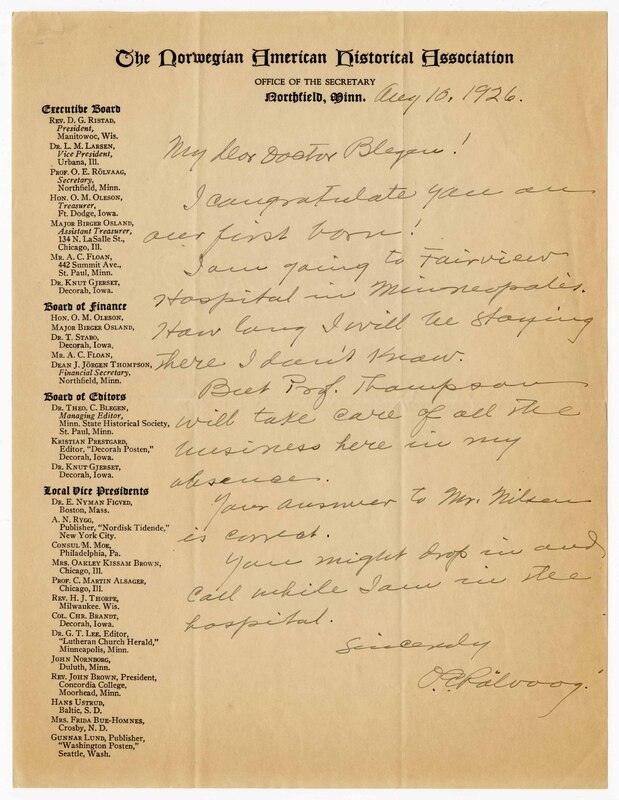 The Norwegian American Historical Association
OFFICE OF THE SECRETARY
Northfield, Minn. Aug 10, 1926.
Executive Board
REV. D. G. RISTAD,
President,
Manitowoc, Wis.
DR. L. M. LARSEN,
Vice President,
Urbana, Ill.
PROF. O. E. RÖLVAAG,
Secretary,
Northfield, Minn.
HON. O. M. OLESON,
Treasurer,
Ft. Dodge, Iowa.
MAJOR BIRGER OSLAND,
Assistant Treasurer,
134 N. LaSalle St.,
Chicago, Ill.
MR. A. C. FLOAN,
442 Summit Ave.,
St. Paul, Minn.
DR. KNUT GJERSET,
Decorah, Iowa.
Board of Finance
HON. O. M. OLESON,
MAJOR BIRGER OSLAND,
DR. T. STABO,
Decorah, Iowa.
MR. A. C. FLOAN,
DEAN J. JÖRGEN THOMPSON,
Financial Secretary,
Northfield, Minn.
Board of Editors
DR. THEO. C. BLEGEN,
Managing Editor,
Minn. State Historical Society,
St. Paul, Minn.
KRISTIAN PRESTGARD,
Editor, "Decorah Posten,"
Decorah, Iowa.
DR. KNUT GJERSET,
Decorah, Iowa.
Local Vice Presidents
DR. E. NYMAN FIGVED,
Boston, Mass.
A. N. RYGG,
Publisher, "Nordisk Tidende,"
New York City.
CONSUL M. MOE,
Philadelphia, Pa.
MRS. OAKLEY KISSAM BROWN,
Chicago, Ill.
PROF. C. MARTIN ALSAGER,
Chicago, Ill.
REV. H. J. THORPE,
Milwaukee. Wis.
COL. CHR. BRANDT,
Decorah, Iowa.
DR. G. T. LEE, Editor,
"Lutheran Church Herald,"
Minneapolis, Minn.
JOHN NORNBORG,
Duluth, Minn.
REV. JOHN BROWN, President,
Concordia College,
Moorhead, Minn.
HANS USTRUD,
Baltic, S. D.
MRS. FRIDA BUE-HOMNES,
Crosby, N. D.
GUNNAR LUND, Publisher,
"Washington Posten,"
Seattle, Wash.
My dear Doctor Blegen!
I congratulate you on
our first born!
I am going to Fairview
Hospital in Minneapolis.
How long I will be staying
there I don't know.
But Prof. Thompson
will take care of all the
business here in my
absence.
Your answer to Mr. Nilsen
is correct.
You might drop in and
call while I am in the
hospital.
Sincerely
O. E. Rölvaag.